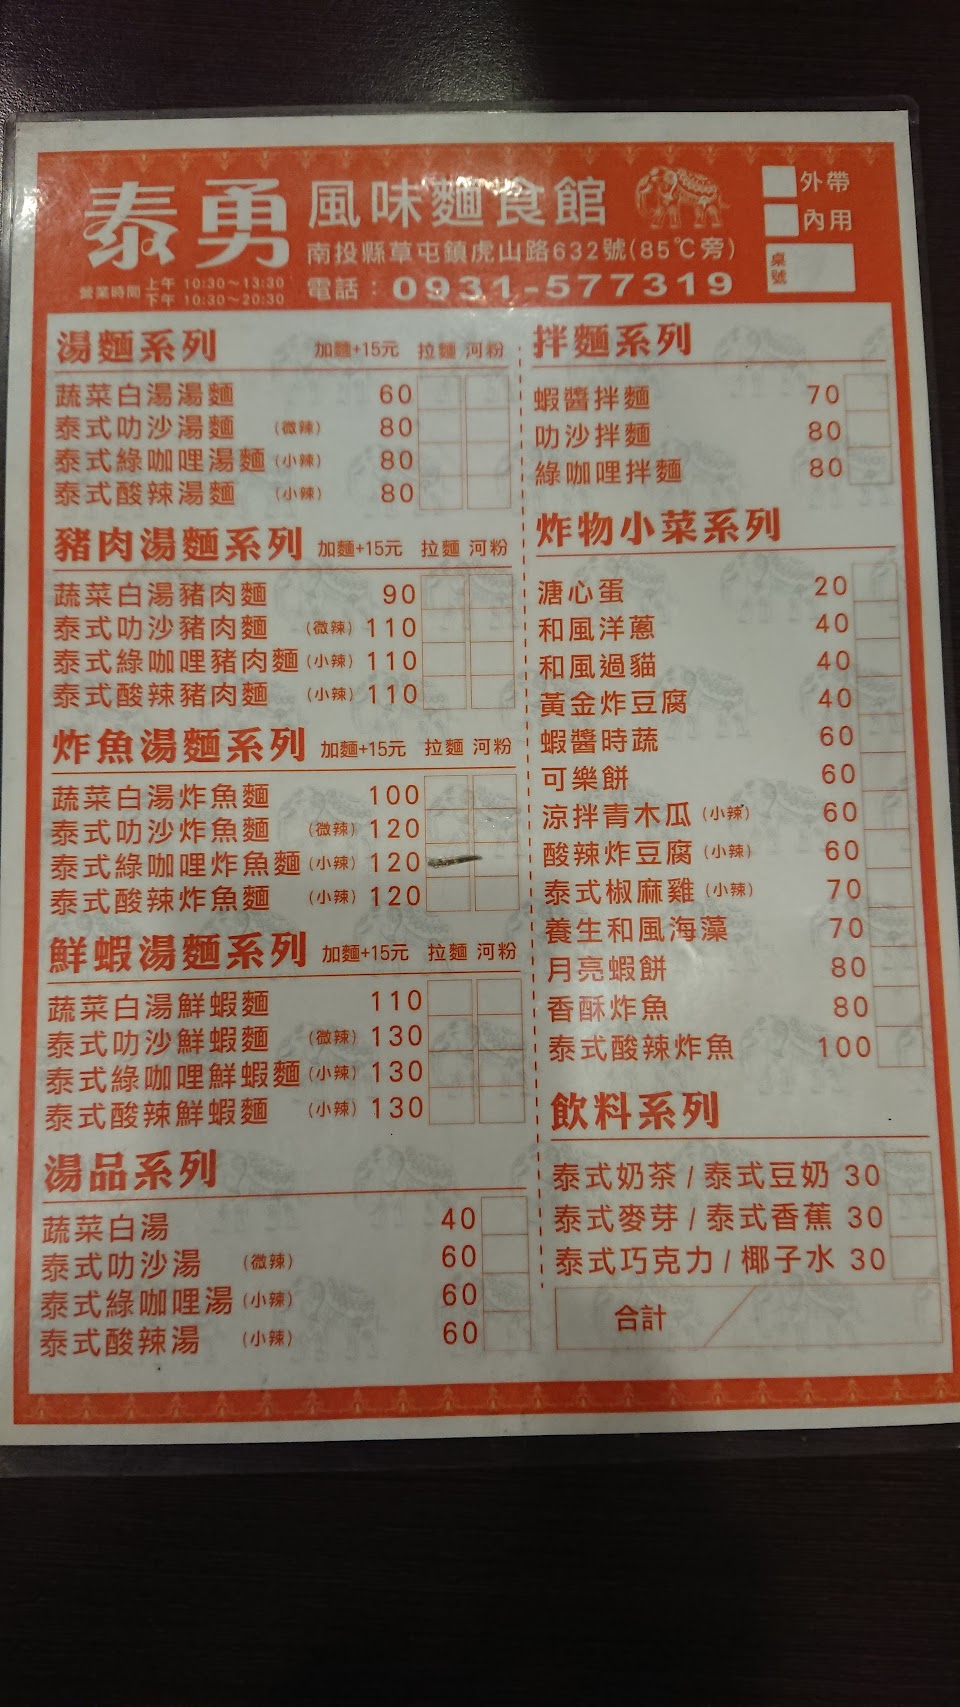 泰勇
風味麵食館
外帶
內用
桌號
南投縣草屯鎮虎山路632號(85℃旁)
營業時間 上午 10:30～13:30
下午 10:30～20:30
電話：0931-577319
湯麵系列 加麵+15元 拉麵 河粉
蔬菜白湯湯麵 60
泰式叻沙湯麵 (微辣) 80
泰式綠咖哩湯麵 (小辣) 80
泰式酸辣湯麵 (小辣) 80
豬肉湯麵系列 加麵+15元 拉麵 河粉
蔬菜白湯豬肉麵 90
泰式叻沙豬肉麵 (微辣) 110
泰式綠咖哩豬肉麵 (小辣) 110
泰式酸辣豬肉麵 (小辣) 110
炸魚湯麵系列 加麵+15元 拉麵 河粉
蔬菜白湯炸魚麵 100
泰式叻沙炸魚麵 (微辣) 120
泰式綠咖哩炸魚麵 (小辣) 120
泰式酸辣炸魚麵 (小辣) 120
鮮蝦湯麵系列 加麵+15元 拉麵 河粉
蔬菜白湯鮮蝦麵 110
泰式叻沙鮮蝦麵 (微辣) 130
泰式綠咖哩鮮蝦麵 (小辣) 130
泰式酸辣鮮蝦麵 (小辣) 130
湯品系列
蔬菜白湯 40
泰式叻沙湯 (微辣) 60
泰式綠咖哩湯 (小辣) 60
泰式酸辣湯 (小辣) 60
拌麵系列
蝦醬拌麵 70
叻沙拌麵 80
綠咖哩拌麵 80
炸物小菜系列
溏心蛋 20
和風洋蔥 40
和風過貓 40
黃金炸豆腐 40
蝦醬時蔬 60
可樂餅 60
涼拌青木瓜 (小辣) 60
酸辣炸豆腐 (小辣) 60
泰式椒麻雞 (小辣) 70
養生和風海藻 70
月亮蝦餅 80
香酥炸魚 80
泰式酸辣炸魚 100
飲料系列
泰式奶茶 / 泰式豆奶 30
泰式麥芽 / 泰式香蕉 30
泰式巧克力 / 椰子水 30
合計